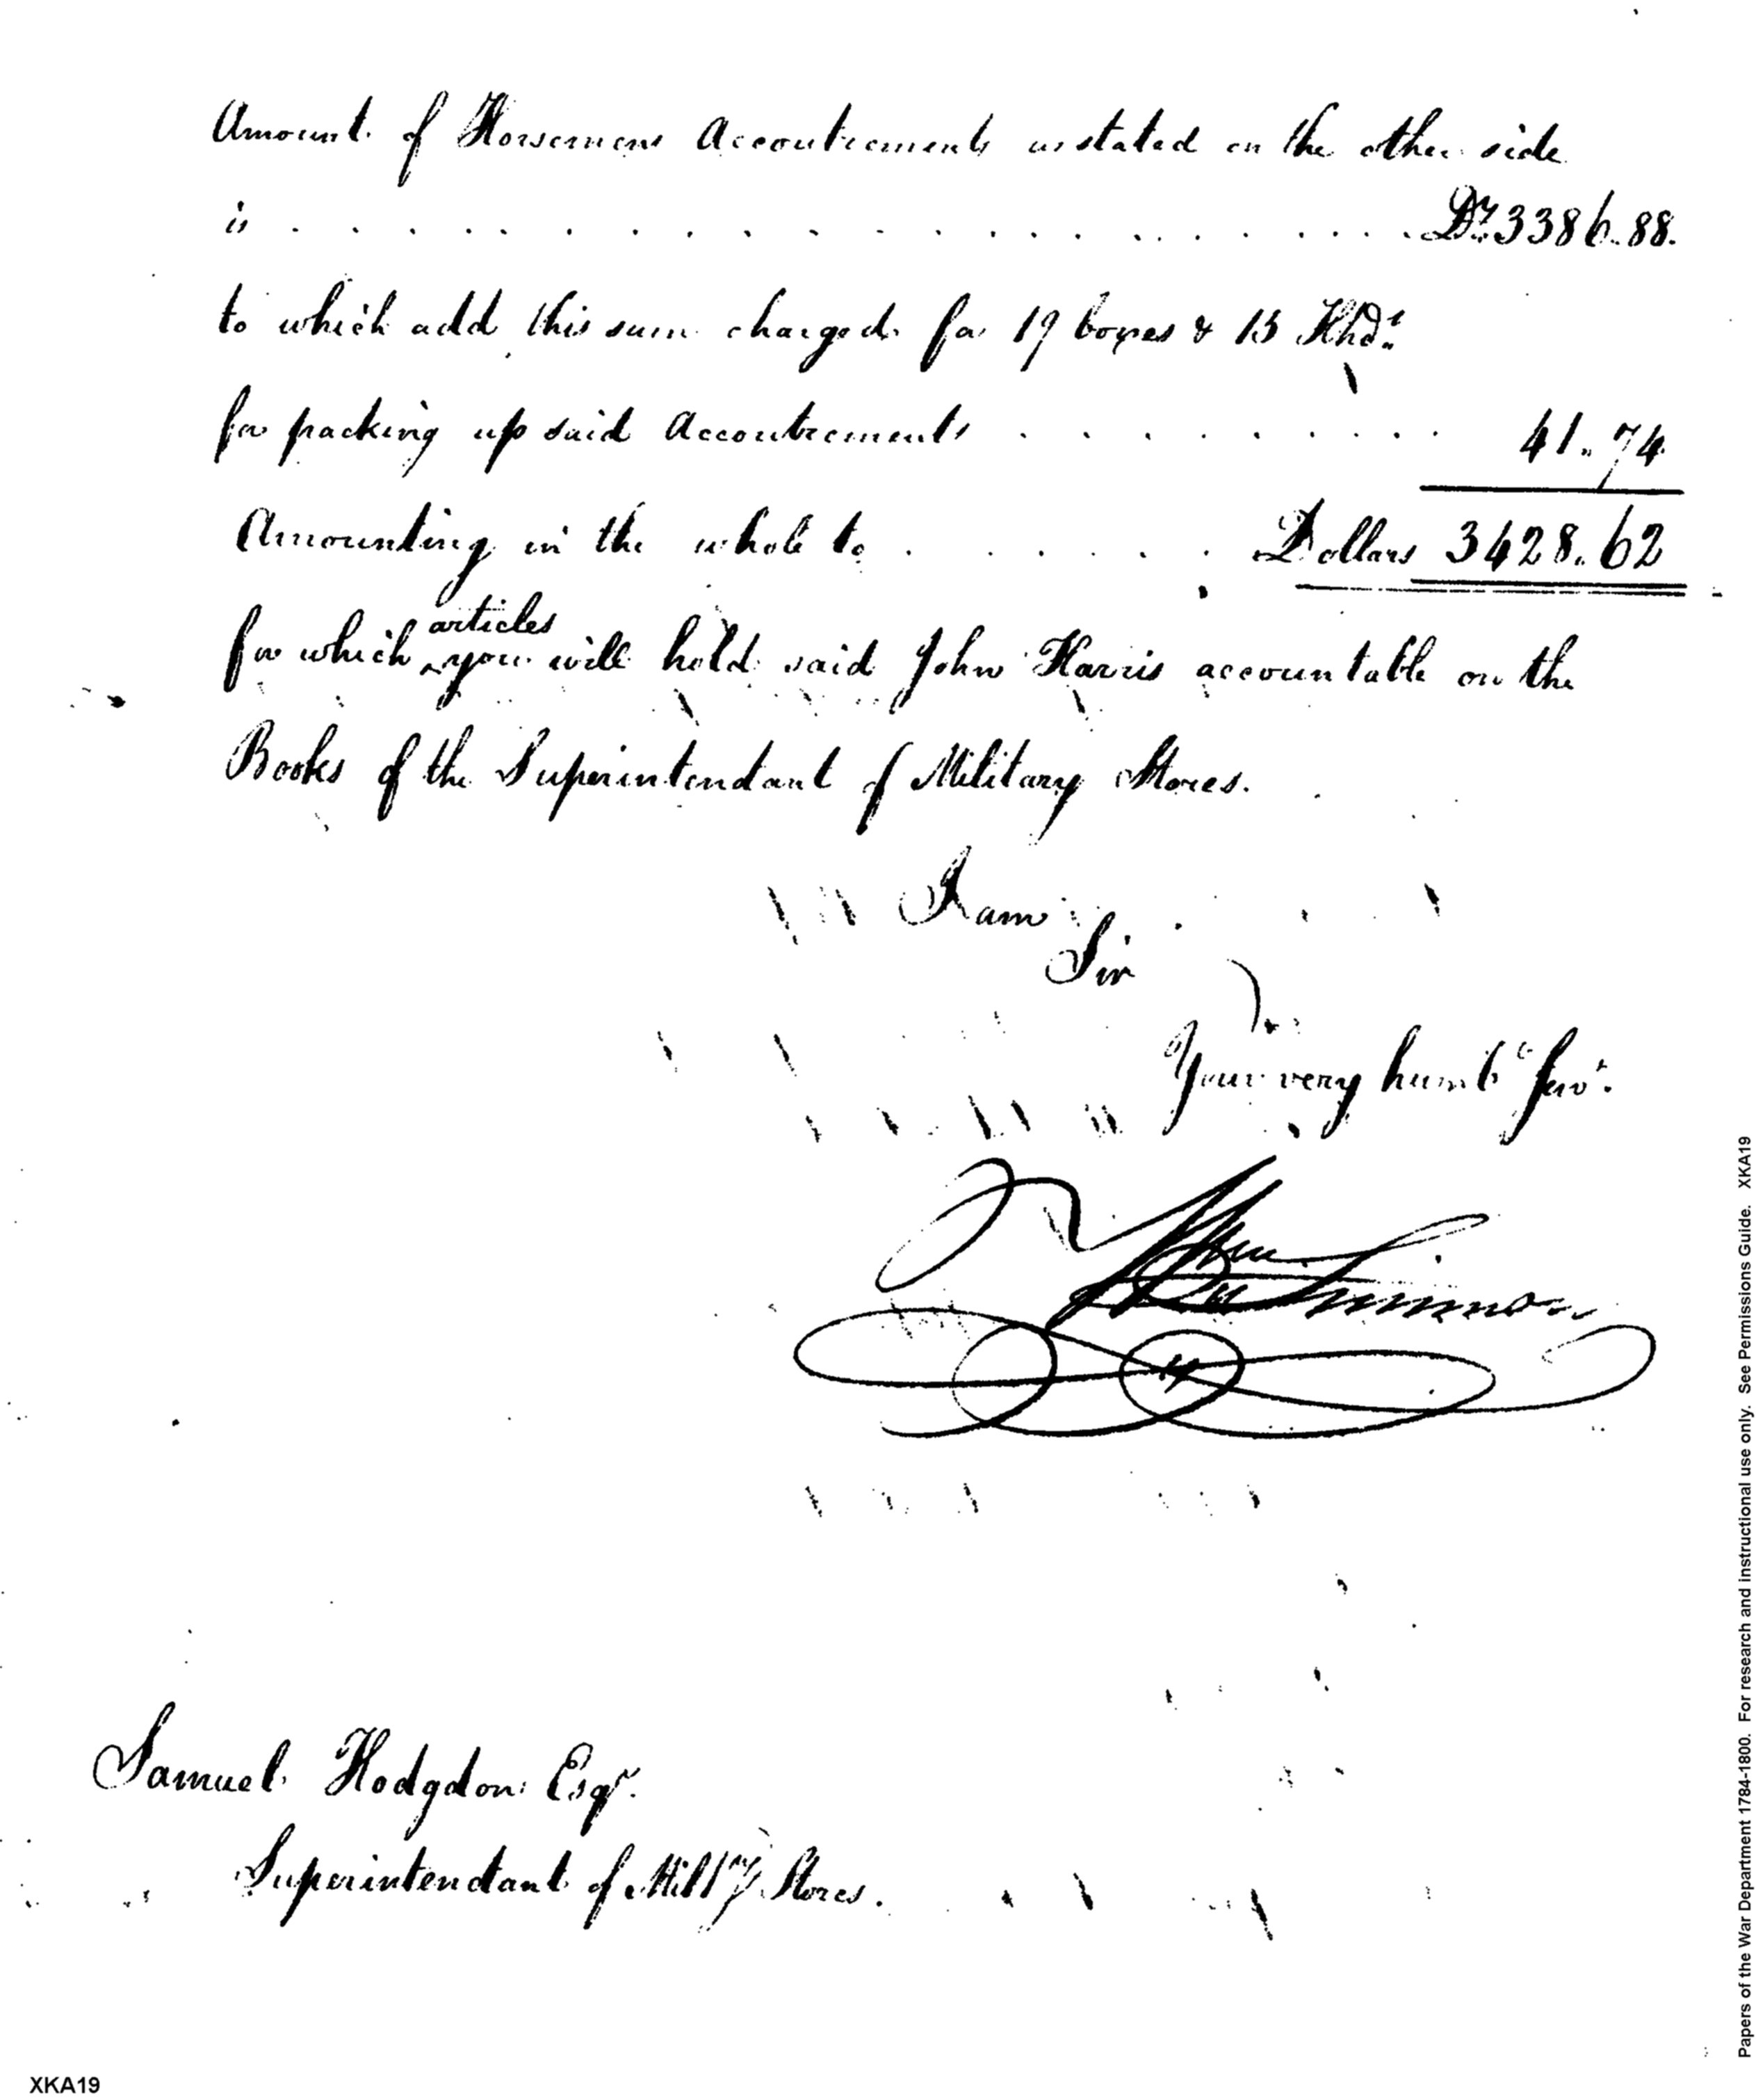 Amount of Horsemens Accoutrements as stated on the other side
is . . . . . . . . . . . . . . . . . . . . Drs. 3386.88.
to which add this sum charged for 19 boxes & 13 Hhds.
for packing up said Accoutrements . . . . . . . . . 41.74
Amounting in the whole to . . . . . . Dollars 3428.62
for which articles you will hold said John Harris accountable on the
Books of the Superintendant of Military Stores.
I am
Sir
Your very humble Servt.
Wm Simmons
Samuel Hodgdon Esqr.
Superintendant of Milly Stores.
Papers of the War Department 1784-1800. For research and instructional use only. See Permissions Guide. XKA19
XKA19